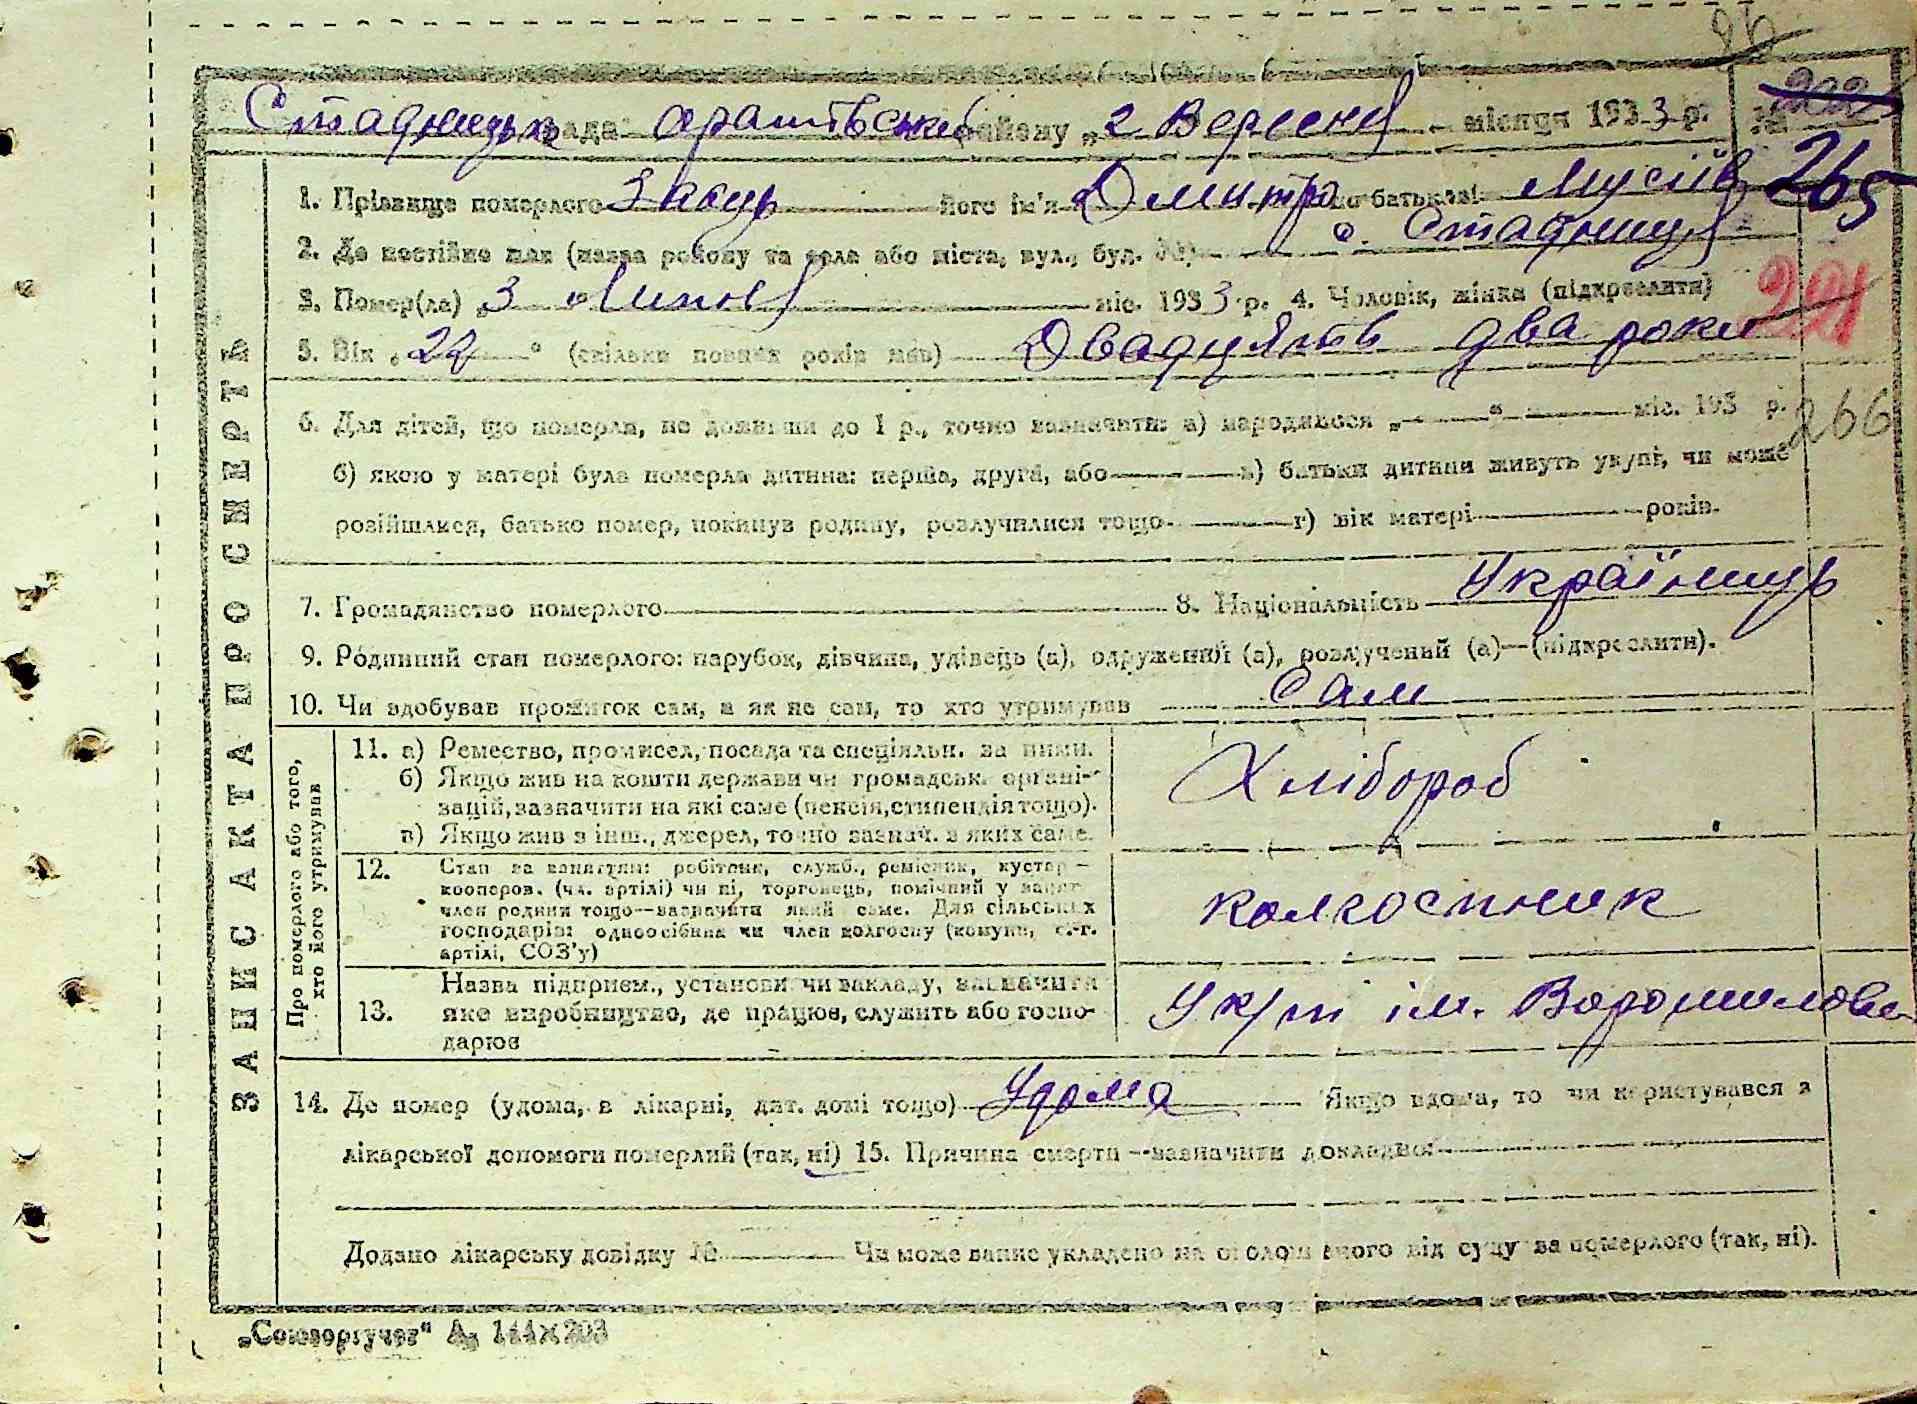 26
Стадницька рада району „2 Вересня місяця 1933 р. № 202
265
1. Прізвище померлого Забур його ім'я Дмитро по батькові Мусіїв
2. Де постійно жив (назва району та села або міста, вул., буд. №) с. Стадниця
3. Помер(ла) „3 Липня міс. 1933 р. 4. Чоловік, жінка (підкреслити)
221
5. Вік „22" (скільки повних років мав) Двадцять два роки
6. Для дітей, що померли, не доживши до 1 р., точно зазначити: а) народилося „ " міс. 193 р.
266
б) якою у матері була померла дитина: перша, друга, або в) батьки дитини живуть укупі, чи може
розійшлися, батько помер, покинув родину, розлучилися тощо г) вік матері років.
7. Громадянство померлого 8. Національність Українець
9. Родинний стан померлого: парубок, дівчина, удівець (а), одружений (а), розлучений (а)—(підкреслити).
10. Чи здобував прожиток сам, а як не сам, то хто утримував Сам
ЗАПИС АКТА ПРО СМЕРТЬ
Про померлого або того, хто його утримував
11. а) Ремество, промисел, посада та спеціяльн. за ними.
б) Якщо жив на кошти держави чи громадськ. органі-
зацій, зазначити на які саме (пенсія, стипендія тощо).
в) Якщо жив з інш., джерел, точно зазнач. з яких саме.
Хлібороб
12. Стан за заняттям: робітник, служб., ремісник, кустар –
кооперов. (чл. артілі) чи ні, торговець, помічний у занят
член родини тощо—зазначити який саме. Для сільських
господарів: одноосібник чи член колгоспу (комуни, с.-г.
артілі, СОЗ'у)
колгоспник
13. Назва підприєм., установи чи закладу, зазначити
яке виробництво, де працює, служить або госпо-
дарює
ім. Ворошилова
14. Де помер (удома, в лікарні, дит. домі тощо) Удома Якщо вдома, то чи користувався з
лікарської допомоги померлий (так, ні) 15. Причина смерти—зазначити докладно:
Додано лікарську довідку № Чи може запис укладено на оголошеного від суду за померлого (так, ні).
„Союзоргучет" А5 144×203